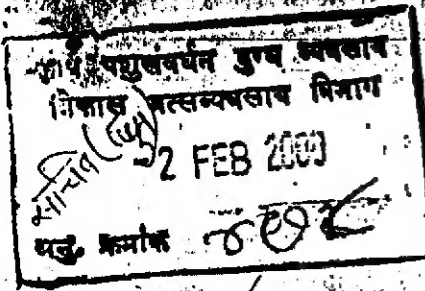 कृषि पशुसंवर्धन दुग्ध व्यवसाय
विकास मत्सव्यवसाय विभाग
सचिव (दुग्ध)
-2 FEB 2000
अनु. क्रमांक